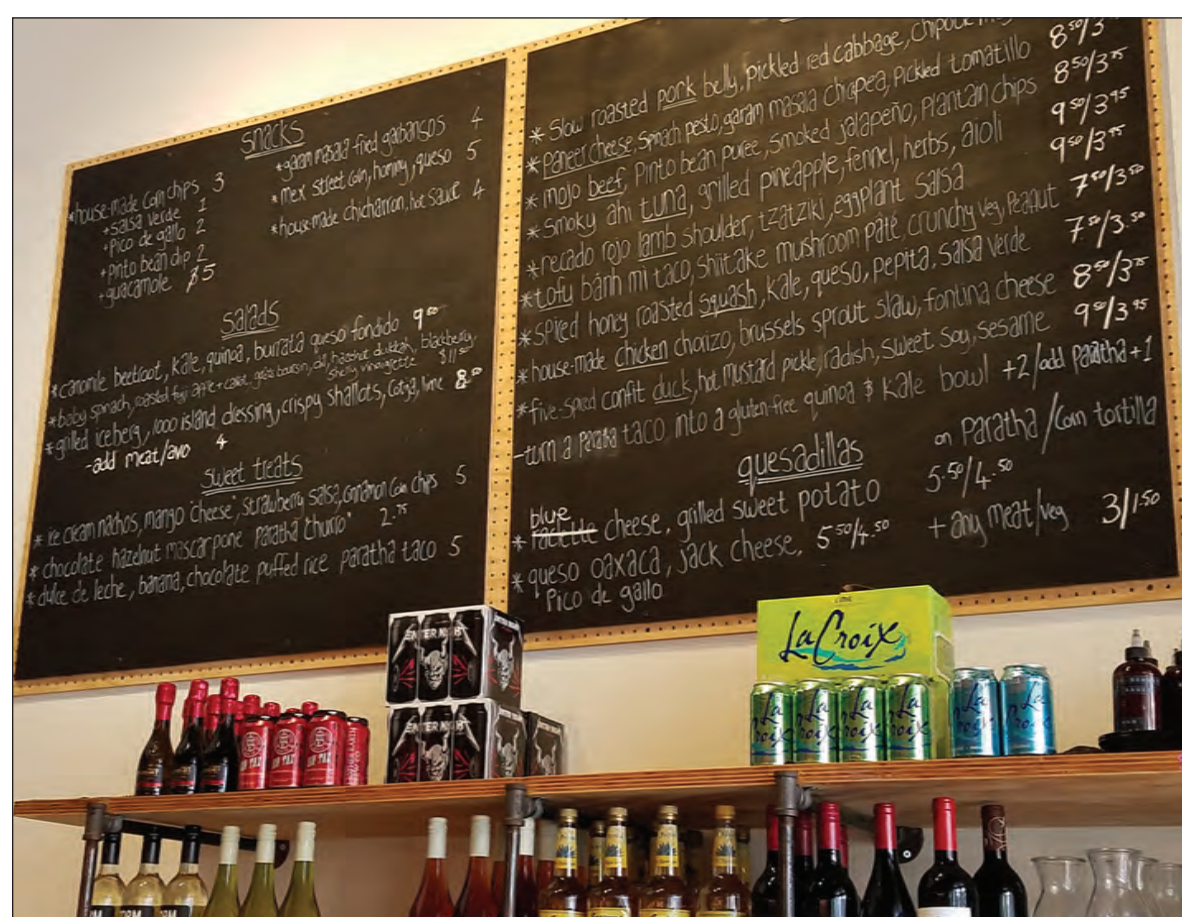 snacks
*house-made corn chips 3
+salsa verde 1
+pico de gallo 2
+pinto bean dip 2
+guacamole $5
*garam masala fried garbansos 4
*mex street corn, hominy, queso 5
*house-made chicharron, hot sauce 4
salads
*canomile beetroot, kale, quinoa, burrata queso fondido 9 50
*baby spinach, roasted fuji apple + carrot, goat boursin, cali hazelnut dukkah, blackberry,
sherry vinaigrette $11 50
*grilled iceberg, 1000 island dressing, crispy shallots, cotija, lime 8 50
-add meat/avo 4
sweet treats
* ice cream nachos, mango "cheese", strawberry salsa, cinnamon corn chips 5
* chocolate hazelnut mascarpone paratha "churro" 2.75
* dulce de leche, banana, chocolate puffed rice paratha taco 5
* Slow roasted pork belly, pickled red cabbage, chipotle
* Paneer cheese, spinach pesto, garam masala chicpea, pickled tomatillo 8 50/3 75
* mojo beef, Pinto bean puree, smoked jalapeño, Plantain chips 8 50/3 75
* Smoky ahi tuna, grilled pineapple, fennel, herbs, aioli 9 50/3 95
* recado rojo lamb shoulder, tzatziki, eggplant salsa 9 50/3 95
*tofu bánh mì taco, shiitake mushroom pâté, crunchy veg, Peanut 7 50/3 50
*spiced honey roasted squash, kale, queso, pepita, salsa verde 7 50/3 50
*house-made chicken chorizo, brussels sprout slaw, fontina cheese 8 50/3 75
*five-spiced confit duck, hot mustard pickle, radish, sweet soy, sesame 9 50/3 95
-turn a Paratha taco into a gluten-free quinoa & kale bowl +2/add Paratha +1
quesadillas
on Paratha/corn tortilla
blue
* raclette cheese, grilled sweet potato 5.50/4.50
* queso oaxaca, jack cheese, 5 50/4.50
Pico de gallo
+ any meat/veg 3/1.50
ENTER NIGHT
ENTER NIGHT
LIME
LaCroix
La Croix
La Croix
La Croix
La Croix
La Croix
La Croix